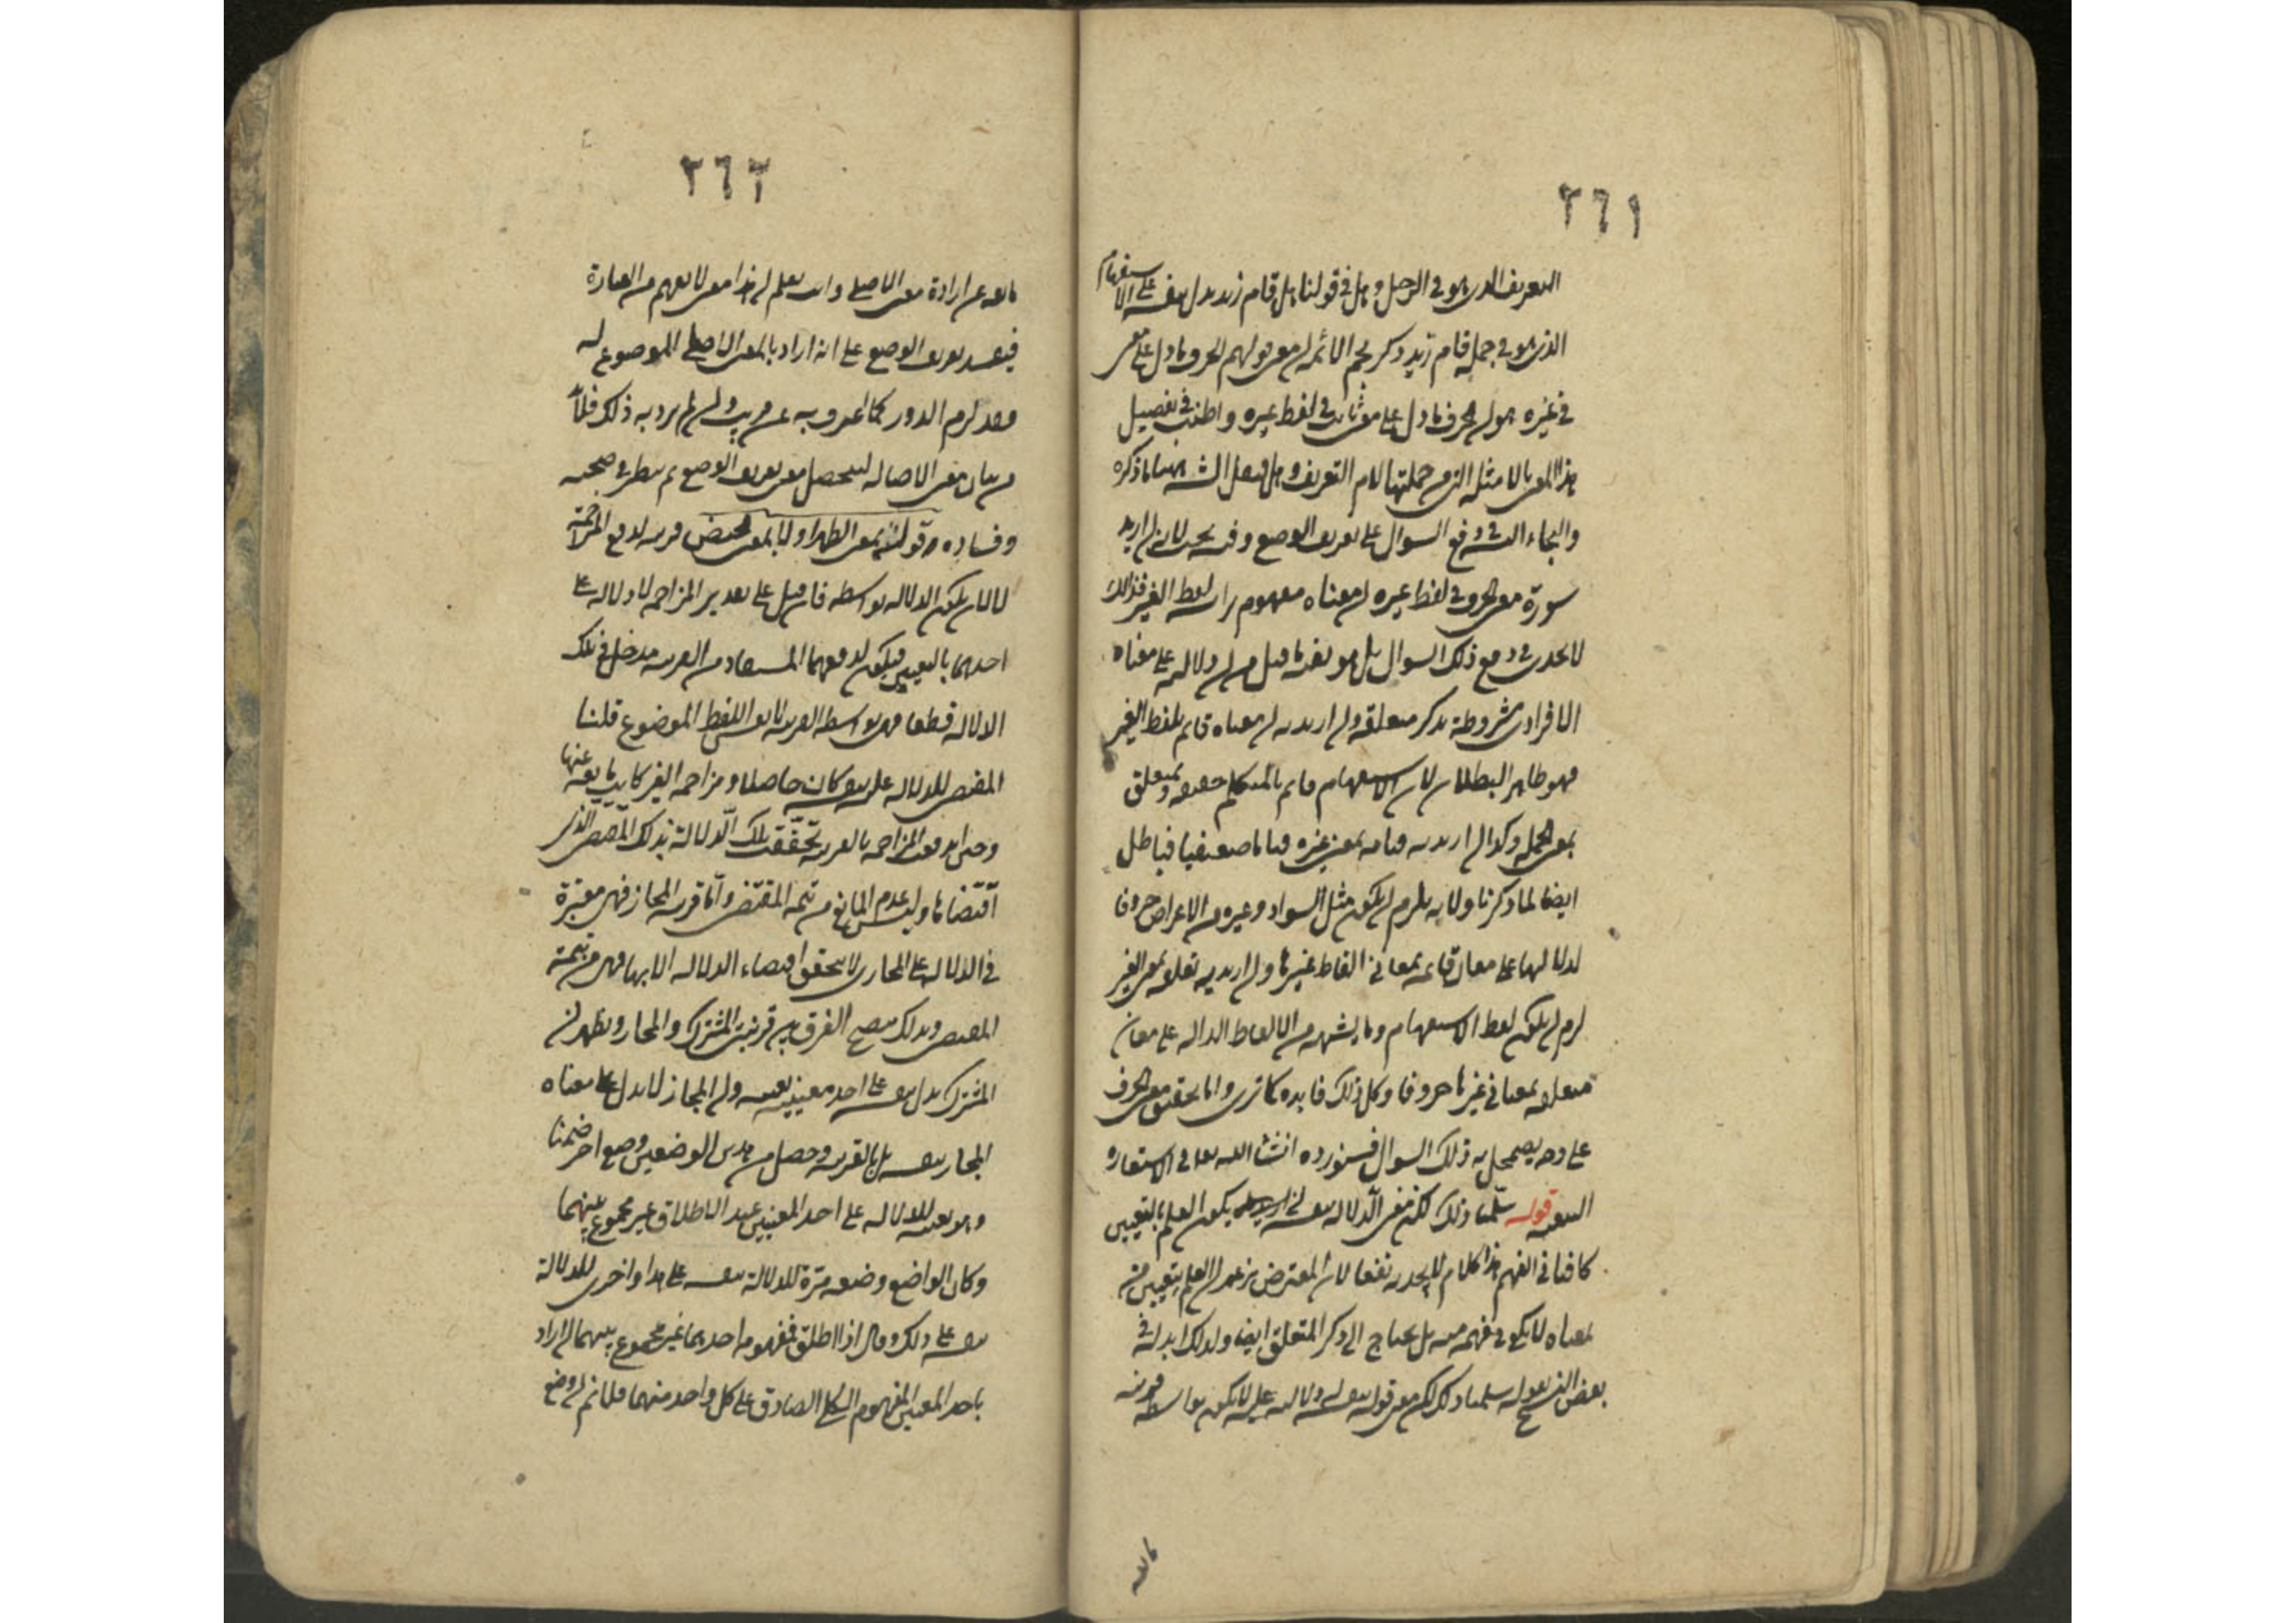 ٢٦١
التعريف الذي هو في الرجل وهل في قولنا هل قام زيد يدل بنفسه على الاستفهام
الذي هو في جملة قام زيد وذكر نجم الائمة ان معنى قولهم الحرف ما دل على معنى
في غيره هو ان الحرف ما دل على معنى ثابت في لفظ غيره واطنب في تفصيل
هذا المعنى بالامثلة التي من جملتها لام التعريف وهل فنقل الشارح ههنا ما ذكره
والتجاء اليه في دفع السؤال على تعريف الوضع وفيه بحث لانه ان اريد
معنى الحرف في لفظ غيره ان معناه مفهوم لفظ الغير فذلك
لا يجدي في دفع ذلك السؤال بل هو بعينه ما قيل من ان دلالته على معناه
الافرادي مشروطة بذكر متعلقه وان اريد به ان معناه قائم بلفظ الغير
فهو ظاهر البطلان لان الاستفهام قائم بالمتكلم حقيقة ومتعلق
بمعنى الجملة وكذا ان اريد به قيامه بمعنى غيره قياما حقيقيا فباطل
ايضا لما ذكرنا ولانه يلزم ان يكون مثل السواد وغيره من الاعراض حروفا
لدلالتها على معان قائمة بمعاني الفاظ غيرها وان اريد به تعلقه بمعنى الغير
لزم ان يكون لفظ الاستفهام وما يشبهه من الالفاظ الدالة على معان
متعلقة بمعاني غيرها حروفا وكل ذلك فاسد كما ترى واما تحقيق معنى الحرف
على وجه يضمحل به ذلك السؤال فسنورده انشاء الله تعالى في الاستعارة
التبعية قوله سلمنا ذلك لكن معنى الدلالة بنفسه ان يكون العلم بالتعيين
كافيا في الفهم هذا الكلام لا يجديه نفعا لان المعترض يزعم ان العلم بتعيين من
لمعناه لا يكفي في فهمه منه بل يحتاج الى ذكر المتعلق ايضا ولذلك ابدله في
بعض النسخ بقوله سلمنا ذلك لكن معنى قوله بنفسه ان دلالته عليه لا يكون بواسطة قرينة
مانعة
٢٦٢
مانعة عن ارادة معنى الاصلي وانت تعلم ان هذا معنى لا يفهم من العبارة
فيفسد تعريف الوضع على انه اراد بالمعنى الاصلي الموضوع له
فقد لزم الدور كما اعترف به عن قريب وان لم يرد به ذلك فلا بد
من بيان معنى الاصالة ليتحصل معنى تعريف الوضع ثم ينظر في صحته
وفساده وقوله القرء بمعنى الطهر او لا بمعنى الحيض قرينة لدفع المزاحمة
لا لان يكون الدلالة بواسطته فان قيل على تقدير المزاحمة لا دلالة على
احدهما بالتعيين فيكون لدفعهما المستفاد من القرينة مدخل في تلك
الدلالة قطعا فهي بواسطة القرينة لا بنفس اللفظ الموضوع قلنا
المقتضي للدلالة على نفسه كان حاصلا ومزاحمة الغير كانت مانعة عنها
وحين اندفعت المزاحمة بالقرينة تحققت تلك الدلالة بذلك المقتضي الذي
اقتضاها وليس عدم المانع من تتمة المقتضي واما قرينة المجاز فهي معتبرة
في الدلالة على المعنى المجازي لا يتحقق اقتضاء الدلالة الا بها فهي من تتمة
المقتضي وبذلك يتضح الفرق بين قرينتي المشترك والمجاز ويظهر ان
المشترك يدل بنفسه على احد معنييه بعينه وان المجاز لا يدل على معناه
المجازي بنفسه بل بالقرينة وحصل من هذين الوضعين وضع اخر ضمنا
وهو تعينه للدلالة على احد المعنيين عند الاطلاق غير مجموع بينهما
وكان الواضع وضعه مرة للدلالة بنفسه على هذا واخرى للدلالة
بنفسه على ذلك وقال اذا اطلق فمفهومه احدهما غير مجموع بينهما ان اراد
باحد المعنيين المفهوم الكلي الصادق على كل واحد منهما فلا نم ان وضع